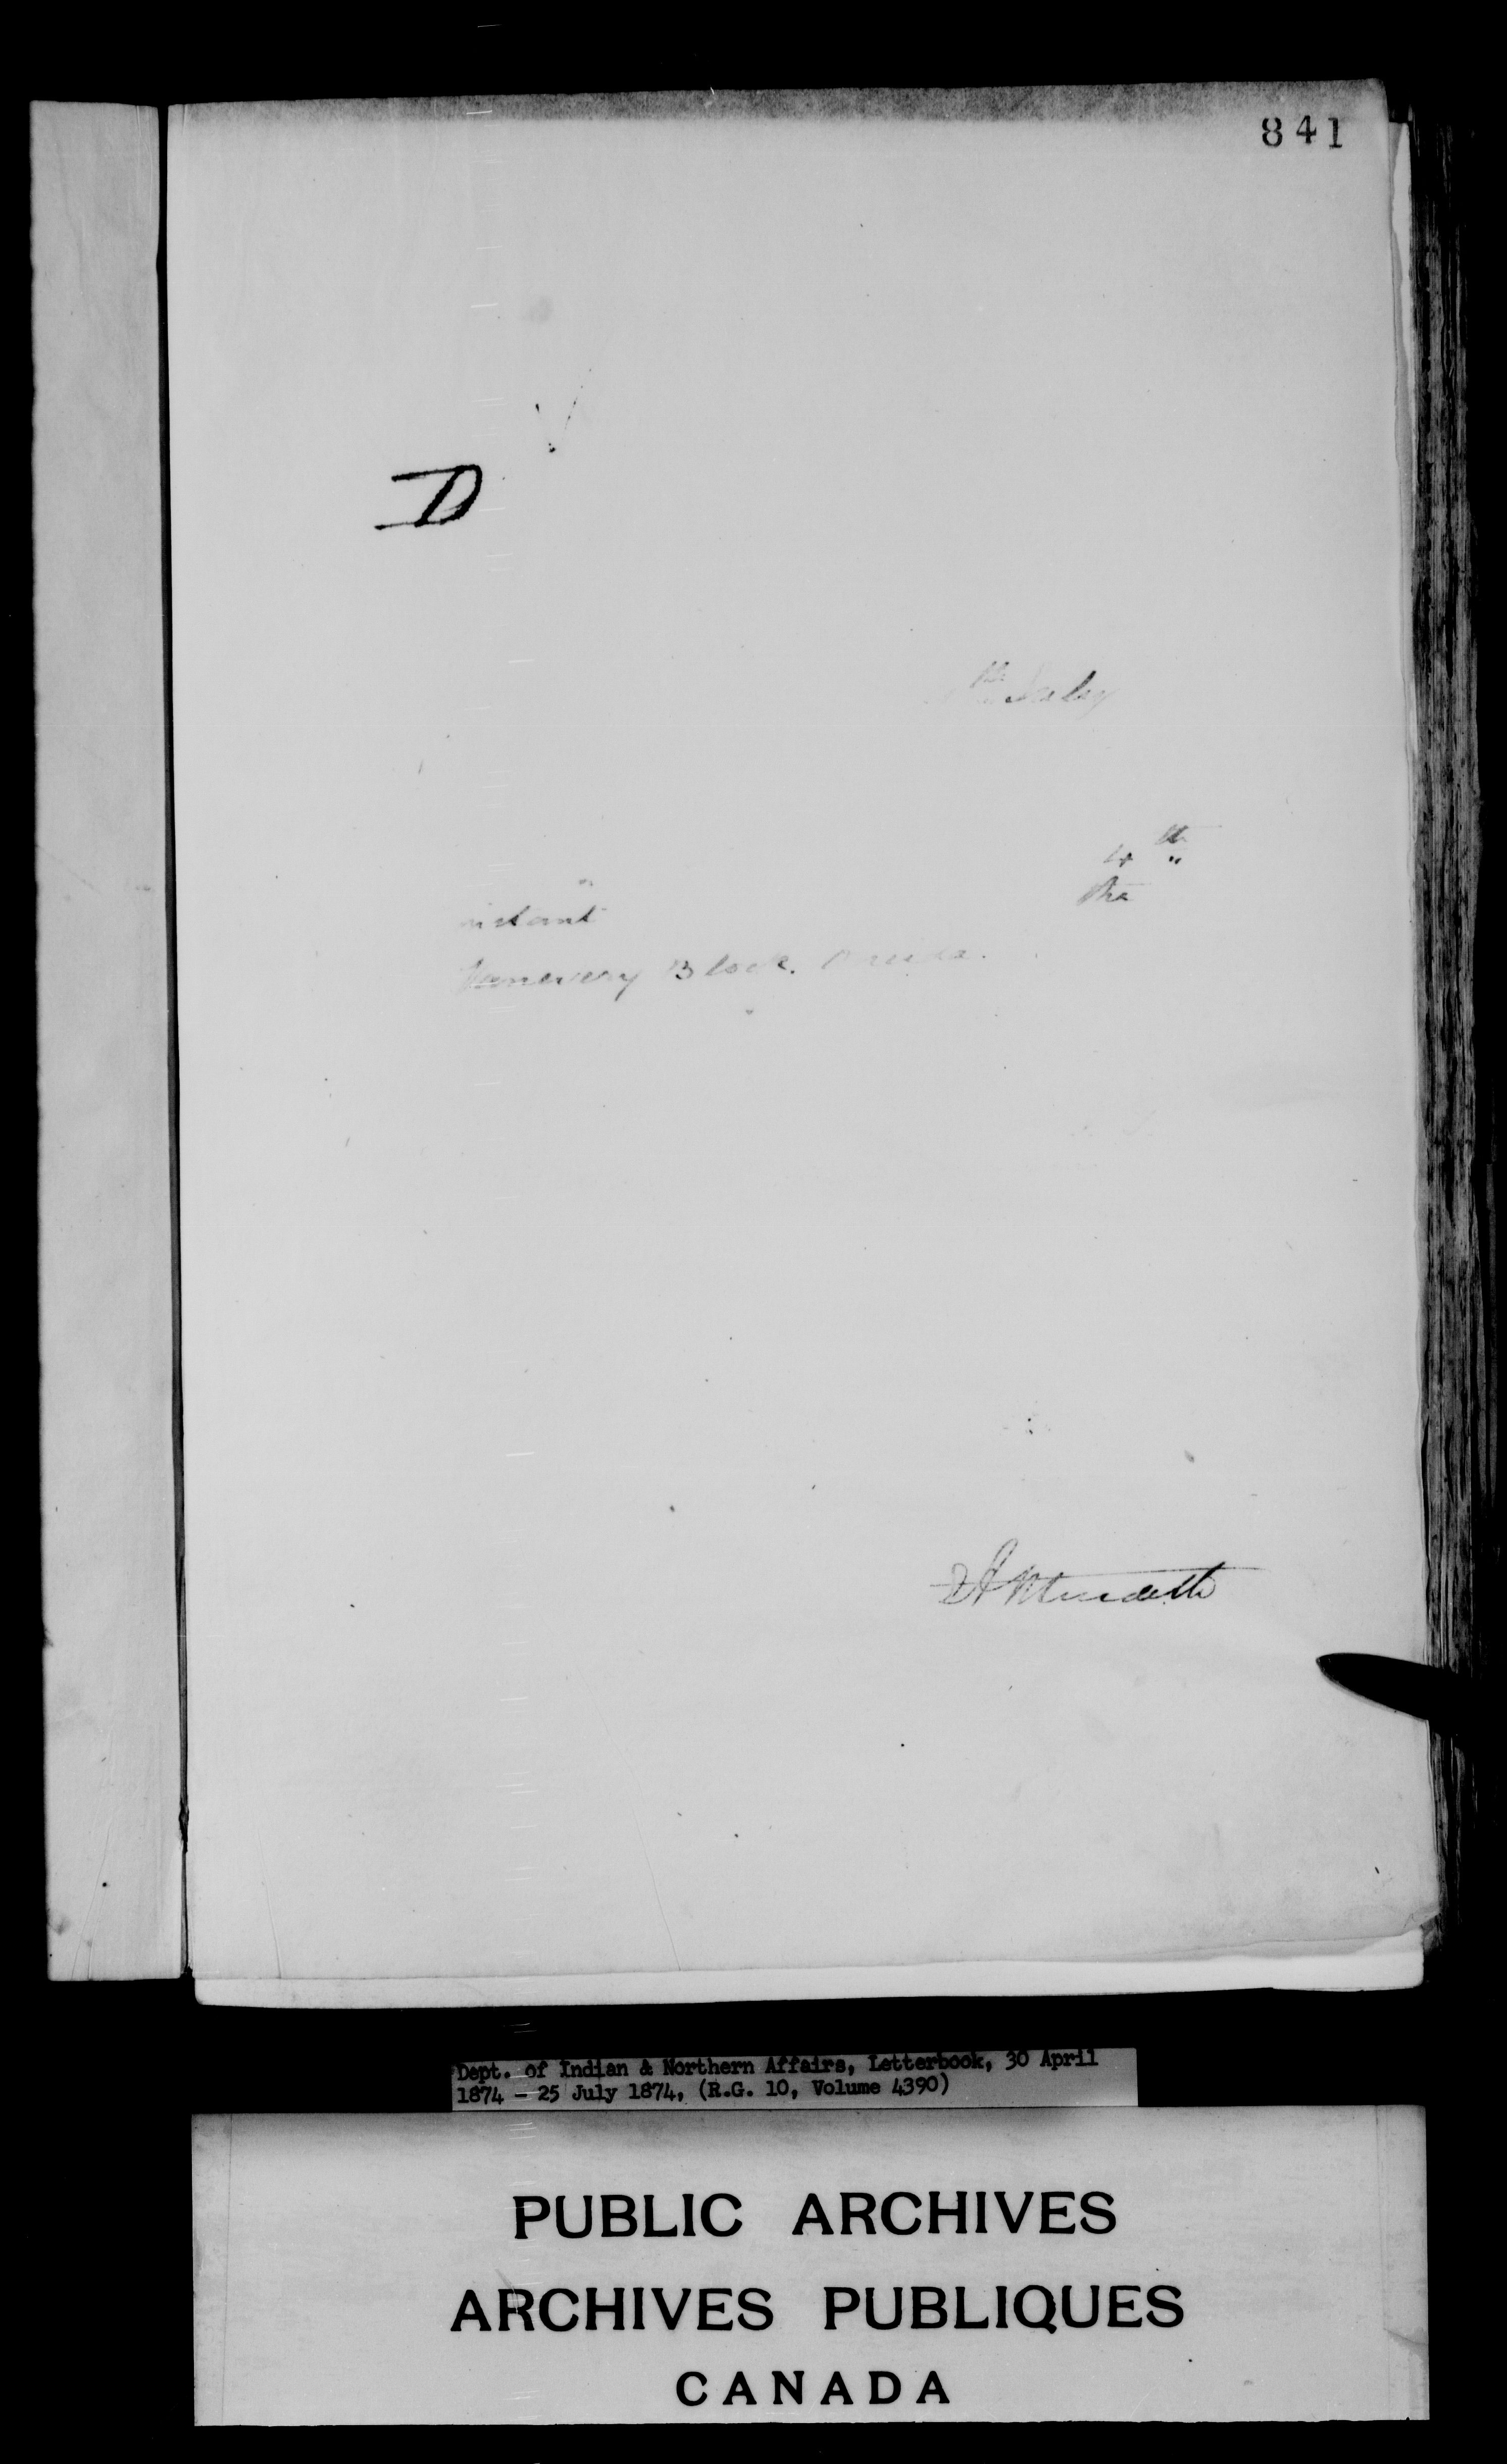 841
D
th July
4th
instant the
Vanevery Block. Oneida.
Dept. of Indian & Northern Affairs, Letterbook, 30 April
1874 - 25 July 1874, (R.G. 10, Volume 4390)
PUBLIC ARCHIVES
ARCHIVES PUBLIQUES
CANADA